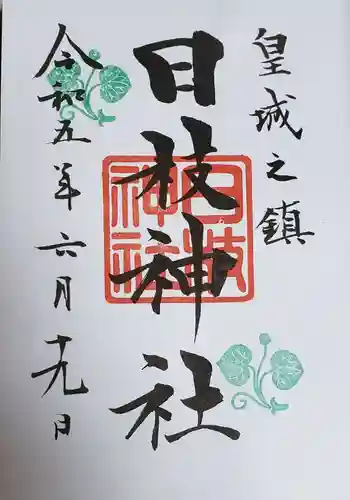 皇城之鎮
日枝神社
日枝神社
令和五年六月十九日